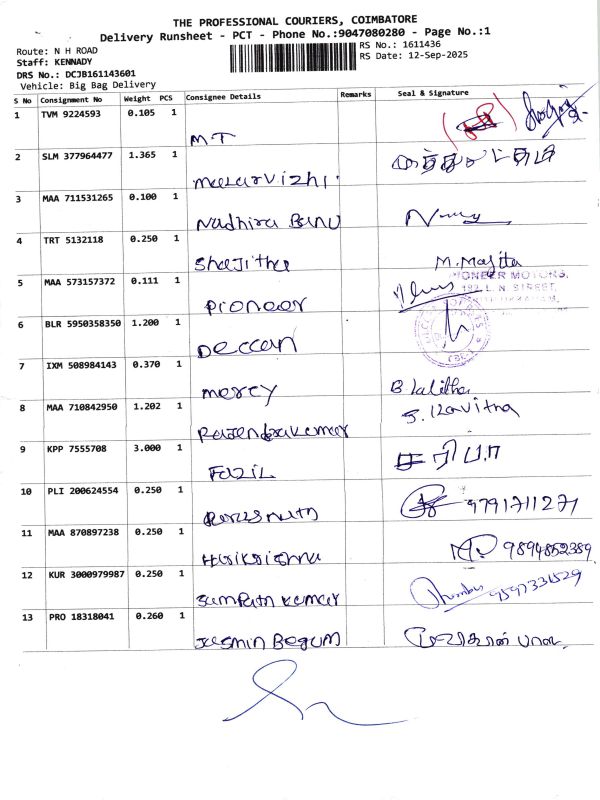 THE PROFESSIONAL COURIERS, COIMBATORE
Delivery Runsheet - PCT - Phone No.:9047080280 - Page No.:1
Route: N H ROAD
RS No.: 1611436
Staff: KENNADY
RS Date: 12-Sep-2025
DRS No.: DCJB161143601
Vehicle: Big Bag Delivery
S No Consignment No Weight PCS Consignee Details Remarks Seal & Signature
1 TVM 9224593 0.105 1 MT
2 SLM 377964477 1.365 1 malarvizhi
3 MAA 711531265 0.100 1 Nadhira Banu
4 TRT 5132118 0.250 1 Shajitha M. Majita
5 MAA 573157372 0.111 1 pioneer
PIONEER MOTORS,
192, L. N. STREET,
6 BLR 5950358350 1.200 1 Deccan
7 IXM 508984143 0.370 1 mercy B Lalitha
8 MAA 710842950 1.202 1 Rajendrakumar S. Kavitha
9 KPP 7555708 3.000 1 Fazil
10 PLI 200624554 0.250 1 9791711271
11 MAA 870897238 0.250 1 Harikrishna 9894852389
12 KUR 3000979987 0.250 1 Sampath kumar 9597331529
13 PRO 18318041 0.260 1 Jasmin Begum